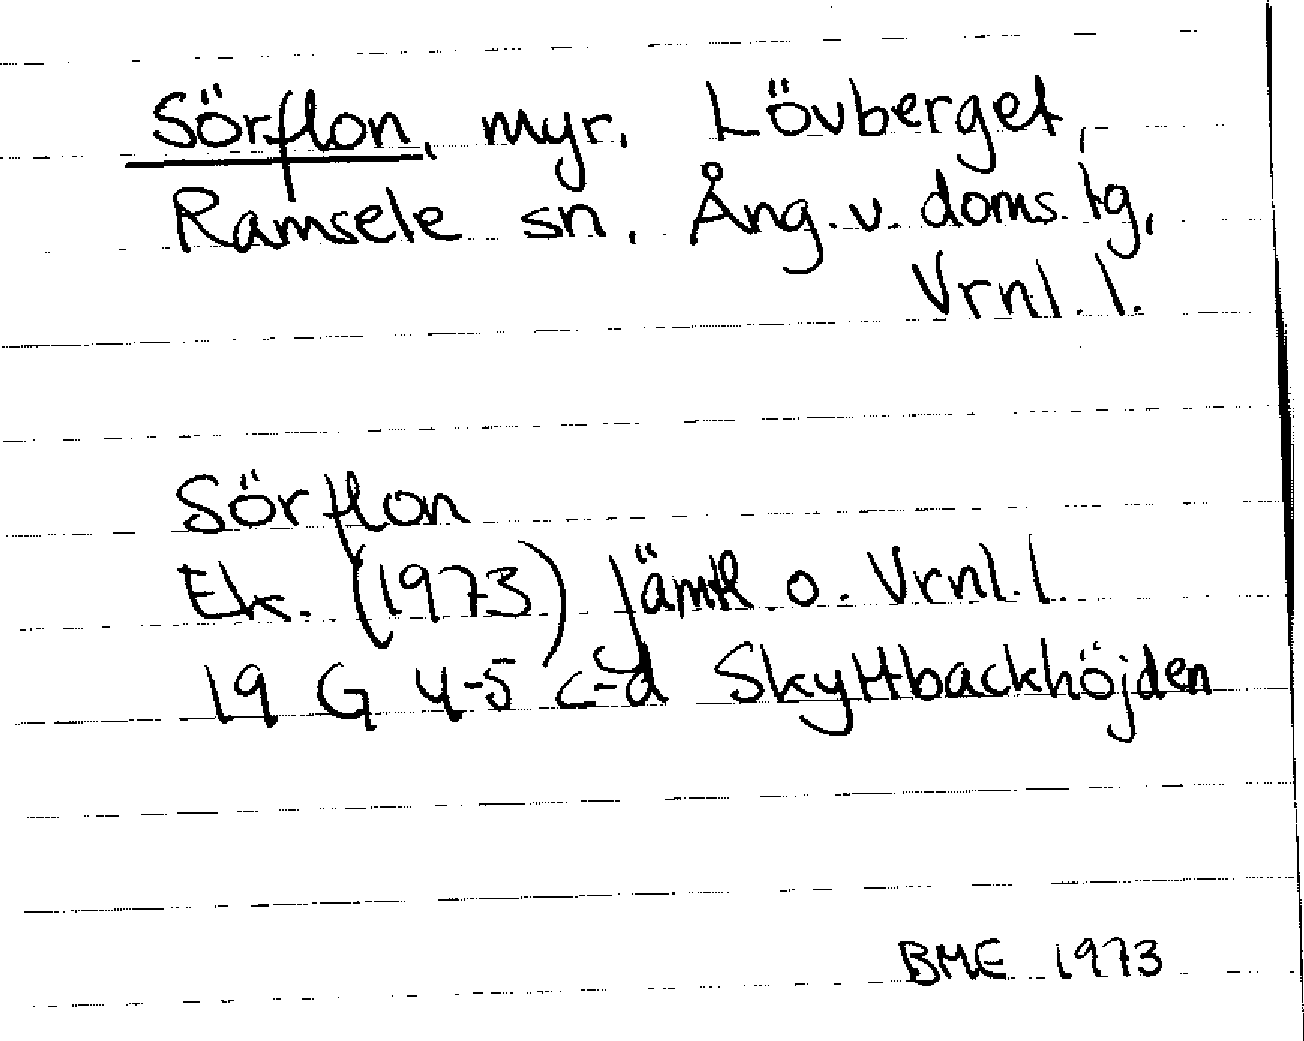 Sörflon, myr, Lövberget,
Ramsele sn, Ång. v. doms. tg,
Vrnl. l.
Sörflon
Ek. (1973) Jämtl o. Vrnl. l
19 G 4-5 c-d Skyttbackhöjden
BME 1973